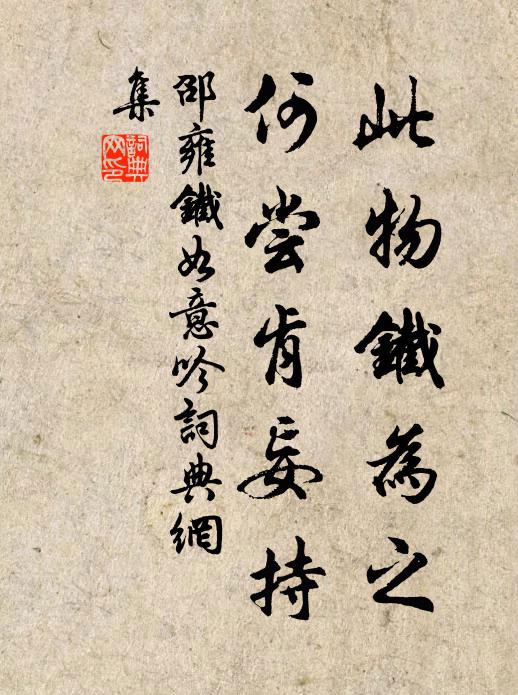 此物鐵為之
何嘗肯妄持
邵雍鐵如意吟詞典網
集
詞典
網印